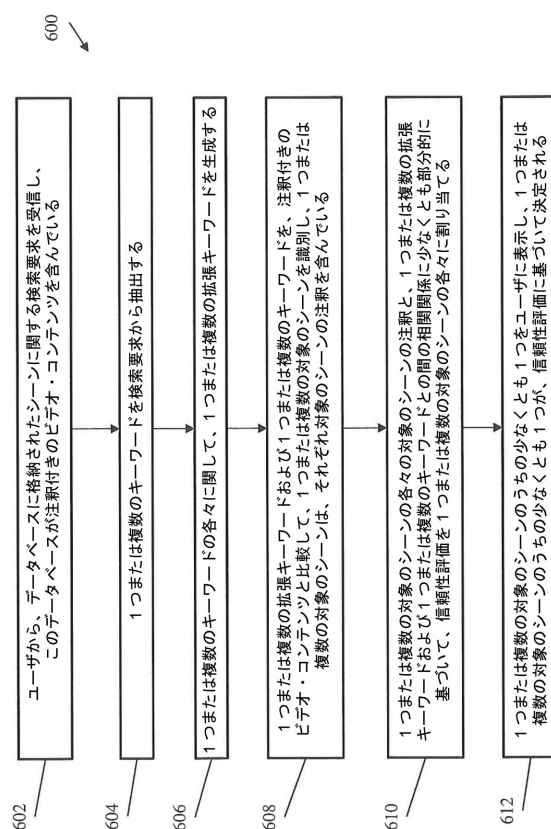 600
602
ユーザから、データベースに格納されたシーンに関する検索要求を受信し、
このデータベースが注釈付きのビデオ・コンテンツを含んでいる
604
1つまたは複数のキーワードを検索要求から抽出する
606
1つまたは複数のキーワードの各々に関して、1つまたは複数の拡張キーワードを生成する
608
1つまたは複数の拡張キーワードおよび1つまたは複数のキーワードを、注釈付きの
ビデオ・コンテンツと比較して、1つまたは複数の対象のシーンを識別し、1つまたは
複数の対象のシーンは、それぞれ対象のシーンの注釈を含んでいる
610
1つまたは複数の対象のシーンの各々の対象のシーンの注釈と、1つまたは複数の拡張
キーワードおよび1つまたは複数のキーワードとの間の相関関係に少なくとも部分的に
基づいて、信頼性評価を1つまたは複数の対象のシーンの各々に割り当てる
612
1つまたは複数の対象のシーンのうちの少なくとも1つをユーザに表示し、1つまたは
複数の対象のシーンのうちの少なくとも1つが、信頼性評価に基づいて決定される